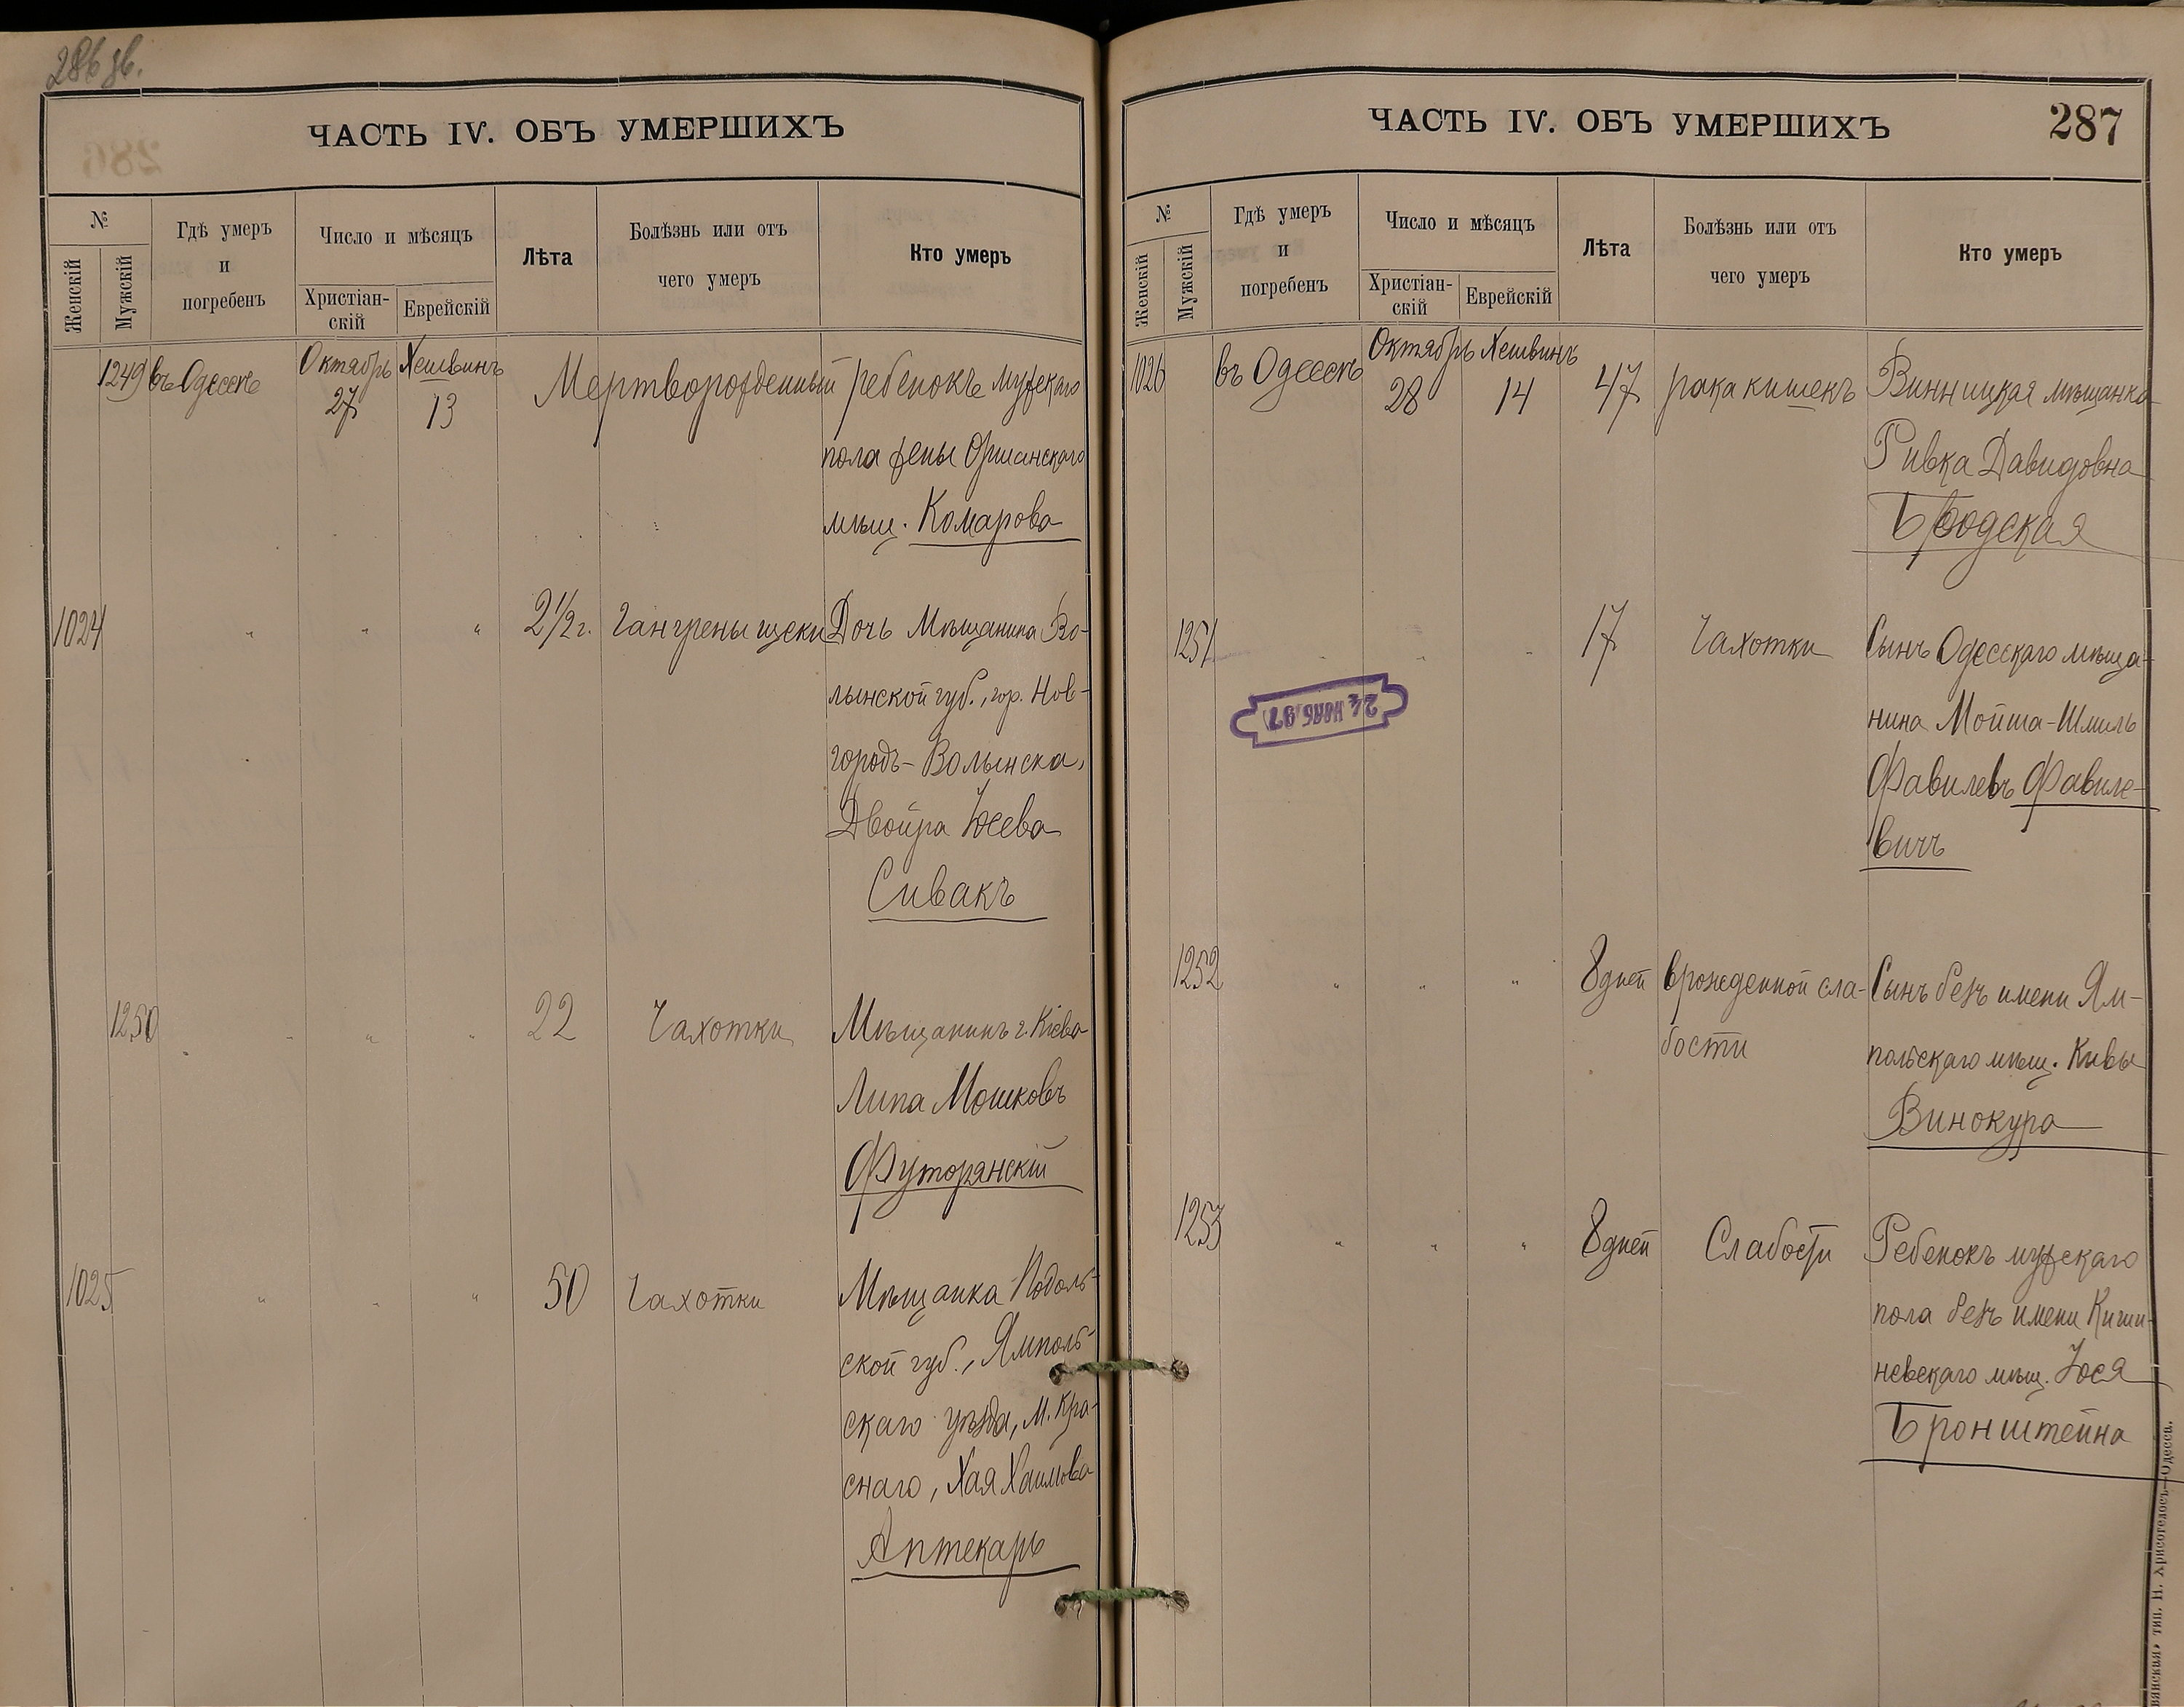 286 зв.
ЧАСТЬ IV. ОБЪ УМЕРШИХЪ
№
Женскій
Мужскій
Гдѣ умеръ
и
погребенъ
Число и мѣсяцъ
Христіан-
скій
Еврейскій
Лѣта
Болѣзнь или отъ
чего умеръ
Кто умеръ
1249 въ Одессѣ Октябрь 27 Хешвинъ 13 Мертворожденный ребенокъ мужскаго
пола жены Оршанскаго
мѣщ. Комарова
1024 " " " 2 1/2 г. Гангрены щеки Дочь Мѣщанина Во-
лынской губ., гор. Нов-
городъ-Волынска,
Двойра Іосева
Сивакъ
1250 " " " 22 Чахотки Мѣщанинъ г. Кіева
Липа Мошковъ
Футорянскій
1025 " " " 50 Чахотки Мѣщанка Подоль-
ской губ., Ямполь-
скаго уѣзда, м. Кра-
снаго, Хая Хаимова
Аптекарь
ЧАСТЬ IV. ОБЪ УМЕРШИХЪ
287
№
Женскій
Мужскій
Гдѣ умеръ
и
погребенъ
Число и мѣсяцъ
Христіан-
скій
Еврейскій
Лѣта
Болѣзнь или отъ
чего умеръ
Кто умеръ
1026 въ Одессѣ Октябрь 28 Хешвинъ 14 47 рака кишекъ Винницкая мѣщанка
Ривка Давидовна
Бродская
1251 " " " 17 Чахотки Сынъ Одесскаго мѣща-
нина Мойша-Шмиль
Фавилевъ Фавиле-
вичъ
24 НОЯБ. 97
1252 " " " 8 дней врожденной сла- Сынъ безъ имени Ям-
бости польскаго мѣщ. Кивы
Винокура
1253 " " " 8 дней Слабости Ребенокъ мужскаго
пола безъ имени Киши-
невскаго мѣщ. Іося
Бронштейна
тип. И. Хрисогелосъ—Одесса.